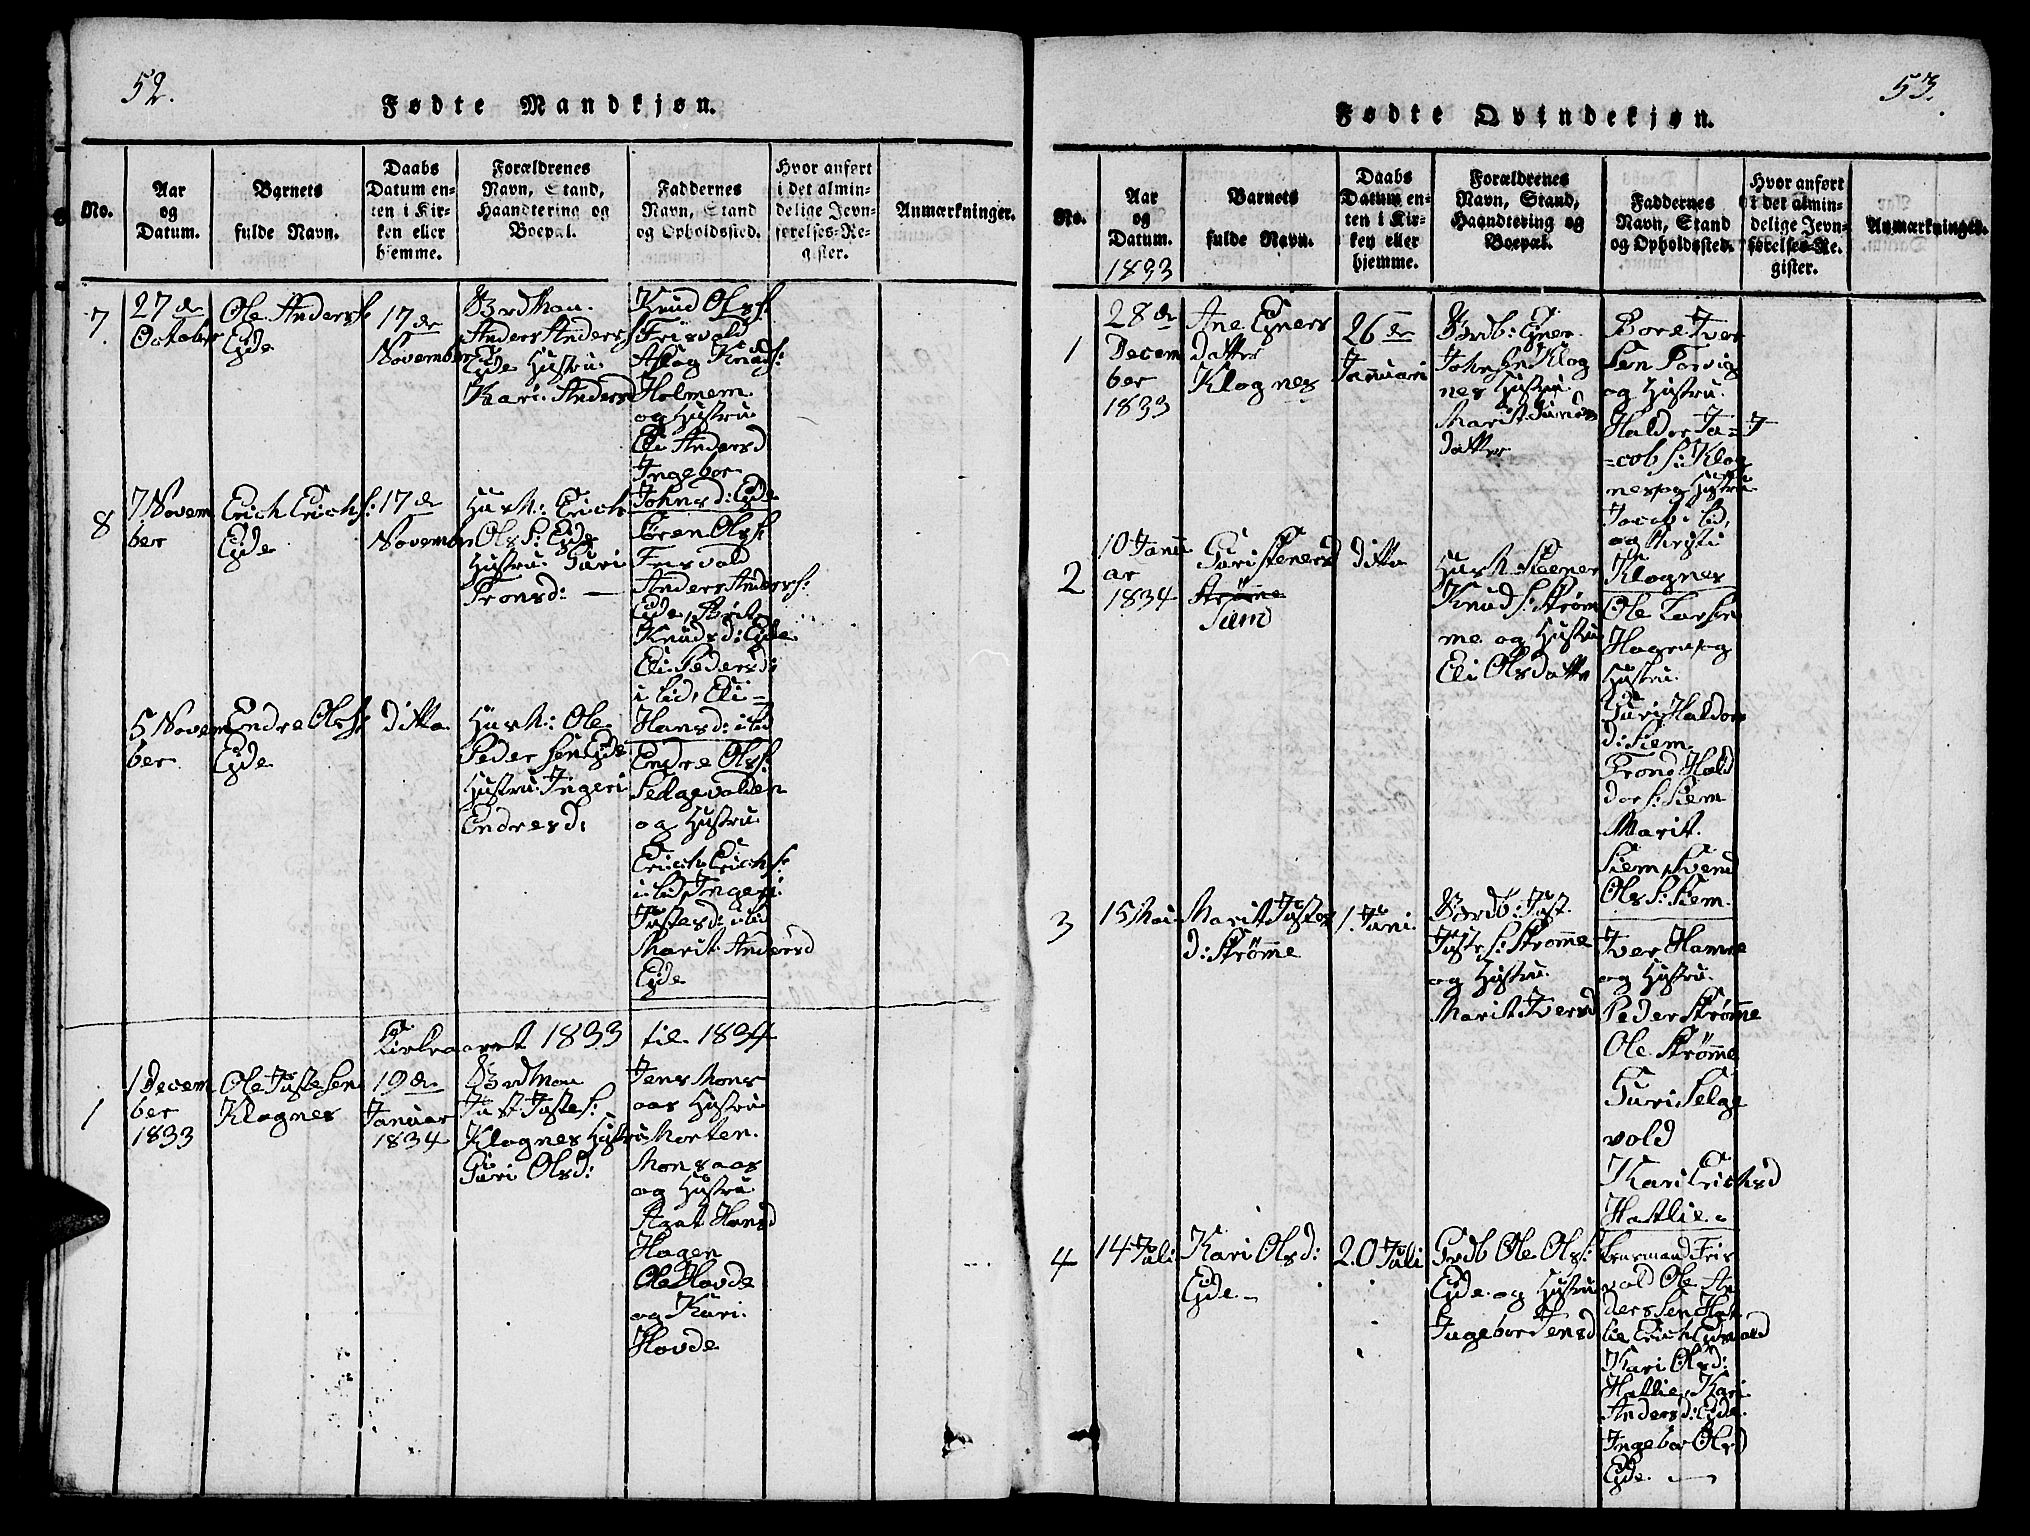 52.
Fødte Mandkjøn.
No.
Aar
og
Datum.
Barnets
fulde Navn.
Daabs
Datum en-
ten i Kir-
ken eller
hjemme.
Forældrenes
Navn, Stand,
Haandtering og
Boepæl.
Faddernes
Navn, Stand
og Opholdssted.
Hvor anført
i det almin-
delige Jevn-
førelses-Re-
gister.
Anmærkninger.
7.
27 de
October
Ole Anders:
Eyde
17 de
November
Anders Anders:
Eyde Hustru:
Kari Andersd
Knud Ols:
Frisvold
Aslag Knuds:
Holmem
og Hustru
Eli Andersd
Ingebor
Johnsd: Eyde
8
7 Novem
ber
Erich Erichs:
Eyde
17 de
November
Husm: Erich
Ols S: Eyde
Hustru: Guri
Tronsd: —
Søren Ols:
Frisvold
Anders Anders:
Eyde, Birit
Knudsd: Eyde
Eli Pedersd:
i Lid, Eli
Hansd: i Lid
5 Novem
ber
Endre Ols:
Eyde
ditto
Husm: Ole
Peder Sen Eyde
Hustru: Ingeri
Endresd:
Endre Ols:
Selgevolden
og Hustru
Erich Erichs:
i Lid, Ingeri
Justesd: i Lid
Marit Andersd
Eyde
Kirkeaaret 1833 til 1834
1
1 Decem
ber
1833
Ole Juste Sen
Klognes
19 de
Januar
1834
Just Juste S:
Klognes Hustru
Guri Olsd:
Jens Mons
aas Hustru
Morten
Monsaas
og Hustru
Agat Hansd
Hagen
Ole Hovde
og Kari
Hovde
53.
Fødte Qvindekjøn.
No.
Aar
og
Datum.
1833
Barnets
fulde Navn.
Daabs
Datum en-
ten i Kir-
ken eller
hjemme.
Forældrenes
Navn, Stand,
Haandtering og
Boepæl.
Faddernes
Navn, Stand
og Opholdssted.
Hvor anført
i det almin-
delige Jevn-
førelses-Re-
gister.
Anmærkninger.
1
28 de
Decem
ber
1833
Ane Ejners
datter
Klognes
26 de
Januari
John Sen Klog
nes Hustru
Marit
datter
Bore Iver
Sen Torvig
og Hustru.
Haldor Ja=
=cob S: Klog
nes og Hustru
Jacob i Lid,
og Kristi
Klognes
2
10 Janu
ar
1834
Guri Steners
Strømme
Siem
ditto
Husm. Steener
Knud S: Strøm
me og Hustru
Eli Olsdatter
Ole Lar Sen
Hagen og
Hustru
Guri Haldors
d: Siem
Trond Hald
dor S: Siem
Marit
Siem, Svend
Ols S: Siem.
3
15 Mai
Marit Justes
d: Strømme
1. Juni
Juste S: Strømme
og Hustru
Marit Iversd
Iver Hamre
og Hustru
Peder Strømme
Ole Strømme
Guri Selge
vold
Kari Erichsd
Hatlie
4
14 Juli
Kari Olsd:
Eyde —
20 Juli
Grdb Ole Ols:
Eyde og Hustru
Ingebor Jensd
Lensmand Fris
vold Ole An
ders Sen Hat
lie, Erich Eidsvold
Kari Olsd:
Hatlie, Kari
Andersd: Eyde
Ingebor Olsd
Eyde —